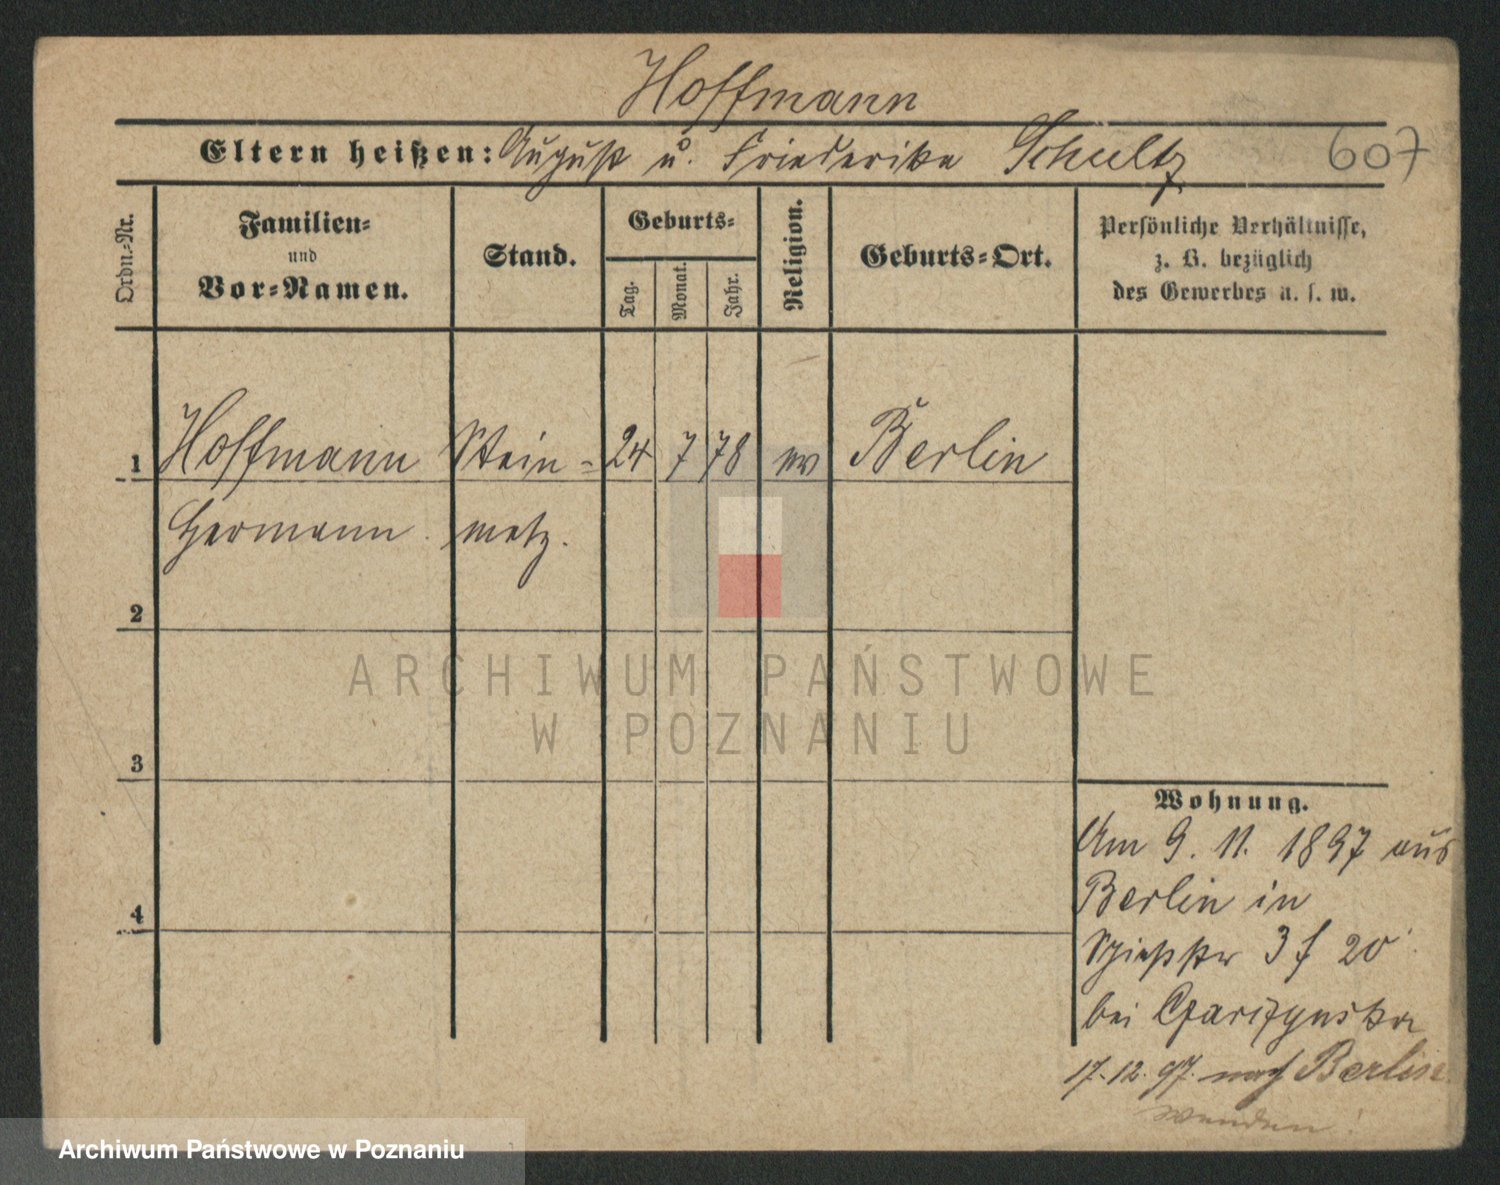 Hoffmann
Eltern heißen: August u. Friederike Schultz
607
Ordn.-Nr.
Familien-
und
Vor-Namen.
Stand.
Geburts-
Tag.
Monat.
Jahr.
Religion.
Geburts-Ort.
Persönliche Verhältnisse,
z. B. bezüglich
des Gewerbes u. s. w.
1 Hoffmann Stein- 24 7 78 ev Berlin
Hermann. metz.
2
ARCHIWUM PAŃSTWOWE
W POZNANIU
3
Wohnung.
Am 9. 11. 1897 aus
Berlin in
4
3 20
bei
17.12.97. nach Berlin
wenden!
Archiwum Państwowe w Poznaniu